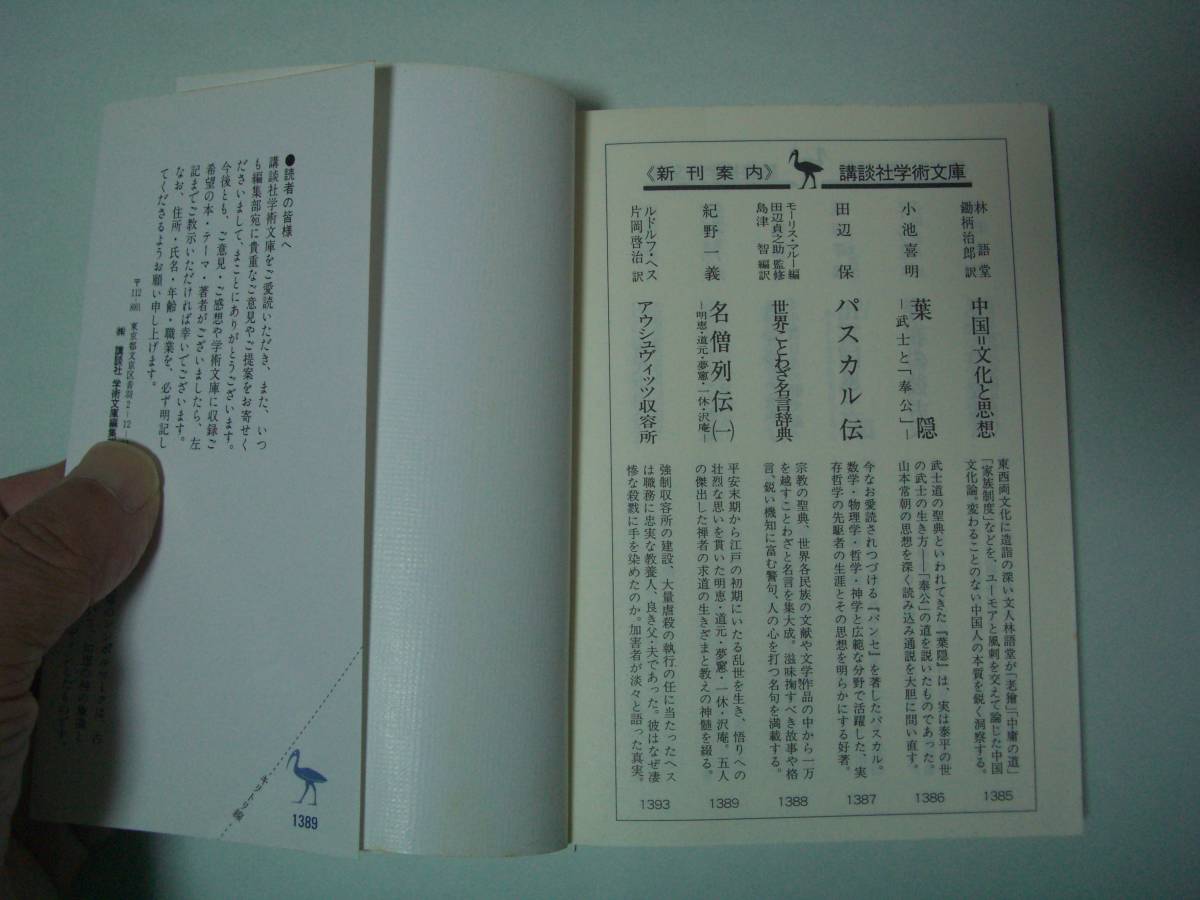 講談社学術文庫
《新刊案内》
林語堂
鋤柄治郎 訳
中国=文化と思想
東西両文化に造詣の深い文人林語堂が「老獪」「中庸の道」
「家族制度」などを、ユーモアと風刺を交えて論じた中国
文化論。変わることのない中国人の本質を鋭く洞察する。
1385
小池喜明
葉隠
―武士と「奉公」―
武士道の聖典といわれてきた『葉隠』は、実は泰平の世
の武士の生き方――「奉公」の道を説いたものであった。
山本常朝の思想を深く読み込み通説を大胆に問い直す。
1386
田辺 保
パスカル伝
今なお愛読されつづける『パンセ』を著したパスカル。
数学・物理学・哲学・神学と広範な分野で活躍した、実
存哲学の先駆者の生涯とその思想を明らかにする好著。
1387
モーリス・マルー編
田辺貞之助 監修
島津 智 編訳
世界ことわざ名言辞典
宗教の聖典、世界各民族の文献や文学作品の中から一万
を越すことわざと名言を集大成。滋味掬すべき故事や格
言、鋭い機知に富む警句、人の心を打つ名句を満載する。
1388
紀野一義
名僧列伝(一)
―明恵・道元・夢窓・一休・沢庵―
平安末期から江戸の初期にいたる乱世を生き、悟りへの
壮烈な思いを貫いた明恵・道元・夢窓・一休・沢庵。五人
の傑出した禅者の求道の生きざまと教えの神髄を綴る。
1389
ルドルフ・ヘス
片岡啓治 訳
アウシュヴィッツ収容所
強制収容所の建設、大量虐殺の執行の任に当たったヘス
は職務に忠実な教養人、良き父・夫であった。彼はなぜ凄
惨な殺戮に手を染めたのか。加害者が淡々と語った真実。
1393
●読者の皆様へ
講談社学術文庫をご愛読いただき、また、いつ
も編集部宛に貴重なご意見やご提案をお寄せく
ださいまして、まことにありがとうございます。
今後とも、ご意見・ご感想や学術文庫に収録ご
希望の本・テーマ・著者がございましたら、左
記までご教示いただければ幸いでございます。
なお、住所・氏名・年齢・職業を、必ず明記し
てくださるようお願い申し上げます。
〒112-8001 東京都文京区音羽2-12
㈱講談社 学術文庫編集
キリトリ線
1389